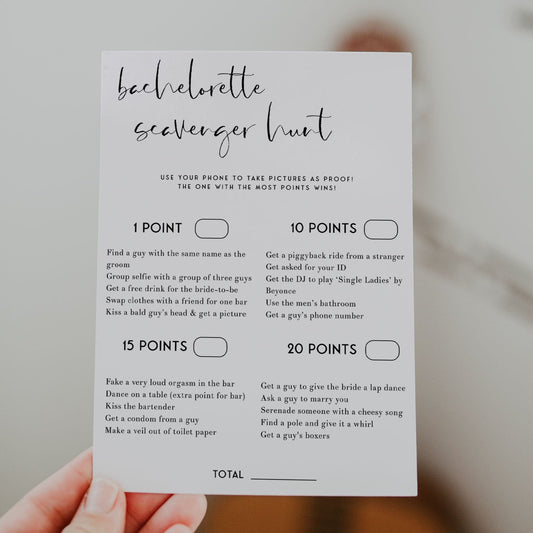 bachelorette
scavenger hunt
USE YOUR PHONE TO TAKE PICTURES AS PROOF!
THE ONE WITH THE MOST POINTS WINS!
1 POINT
Find a guy with the same name as the
groom
Group selfie with a group of three guys
Get a free drink for the bride-to-be
Swap clothes with a friend for one bar
Kiss a bald guy's head & get a picture
10 POINTS
Get a piggyback ride from a stranger
Get asked for your ID
Get the DJ to play 'Single Ladies' by
Beyonce
Use the men's bathroom
Get a guy's phone number
15 POINTS
Fake a very loud orgasm in the bar
Dance on a table (extra point for bar)
Kiss the bartender
Get a condom from a guy
Make a veil out of toilet paper
20 POINTS
Get a guy to give the bride a lap dance
Ask a guy to marry you
Serenade someone with a cheesy song
Find a pole and give it a whirl
Get a guy's boxers
TOTAL